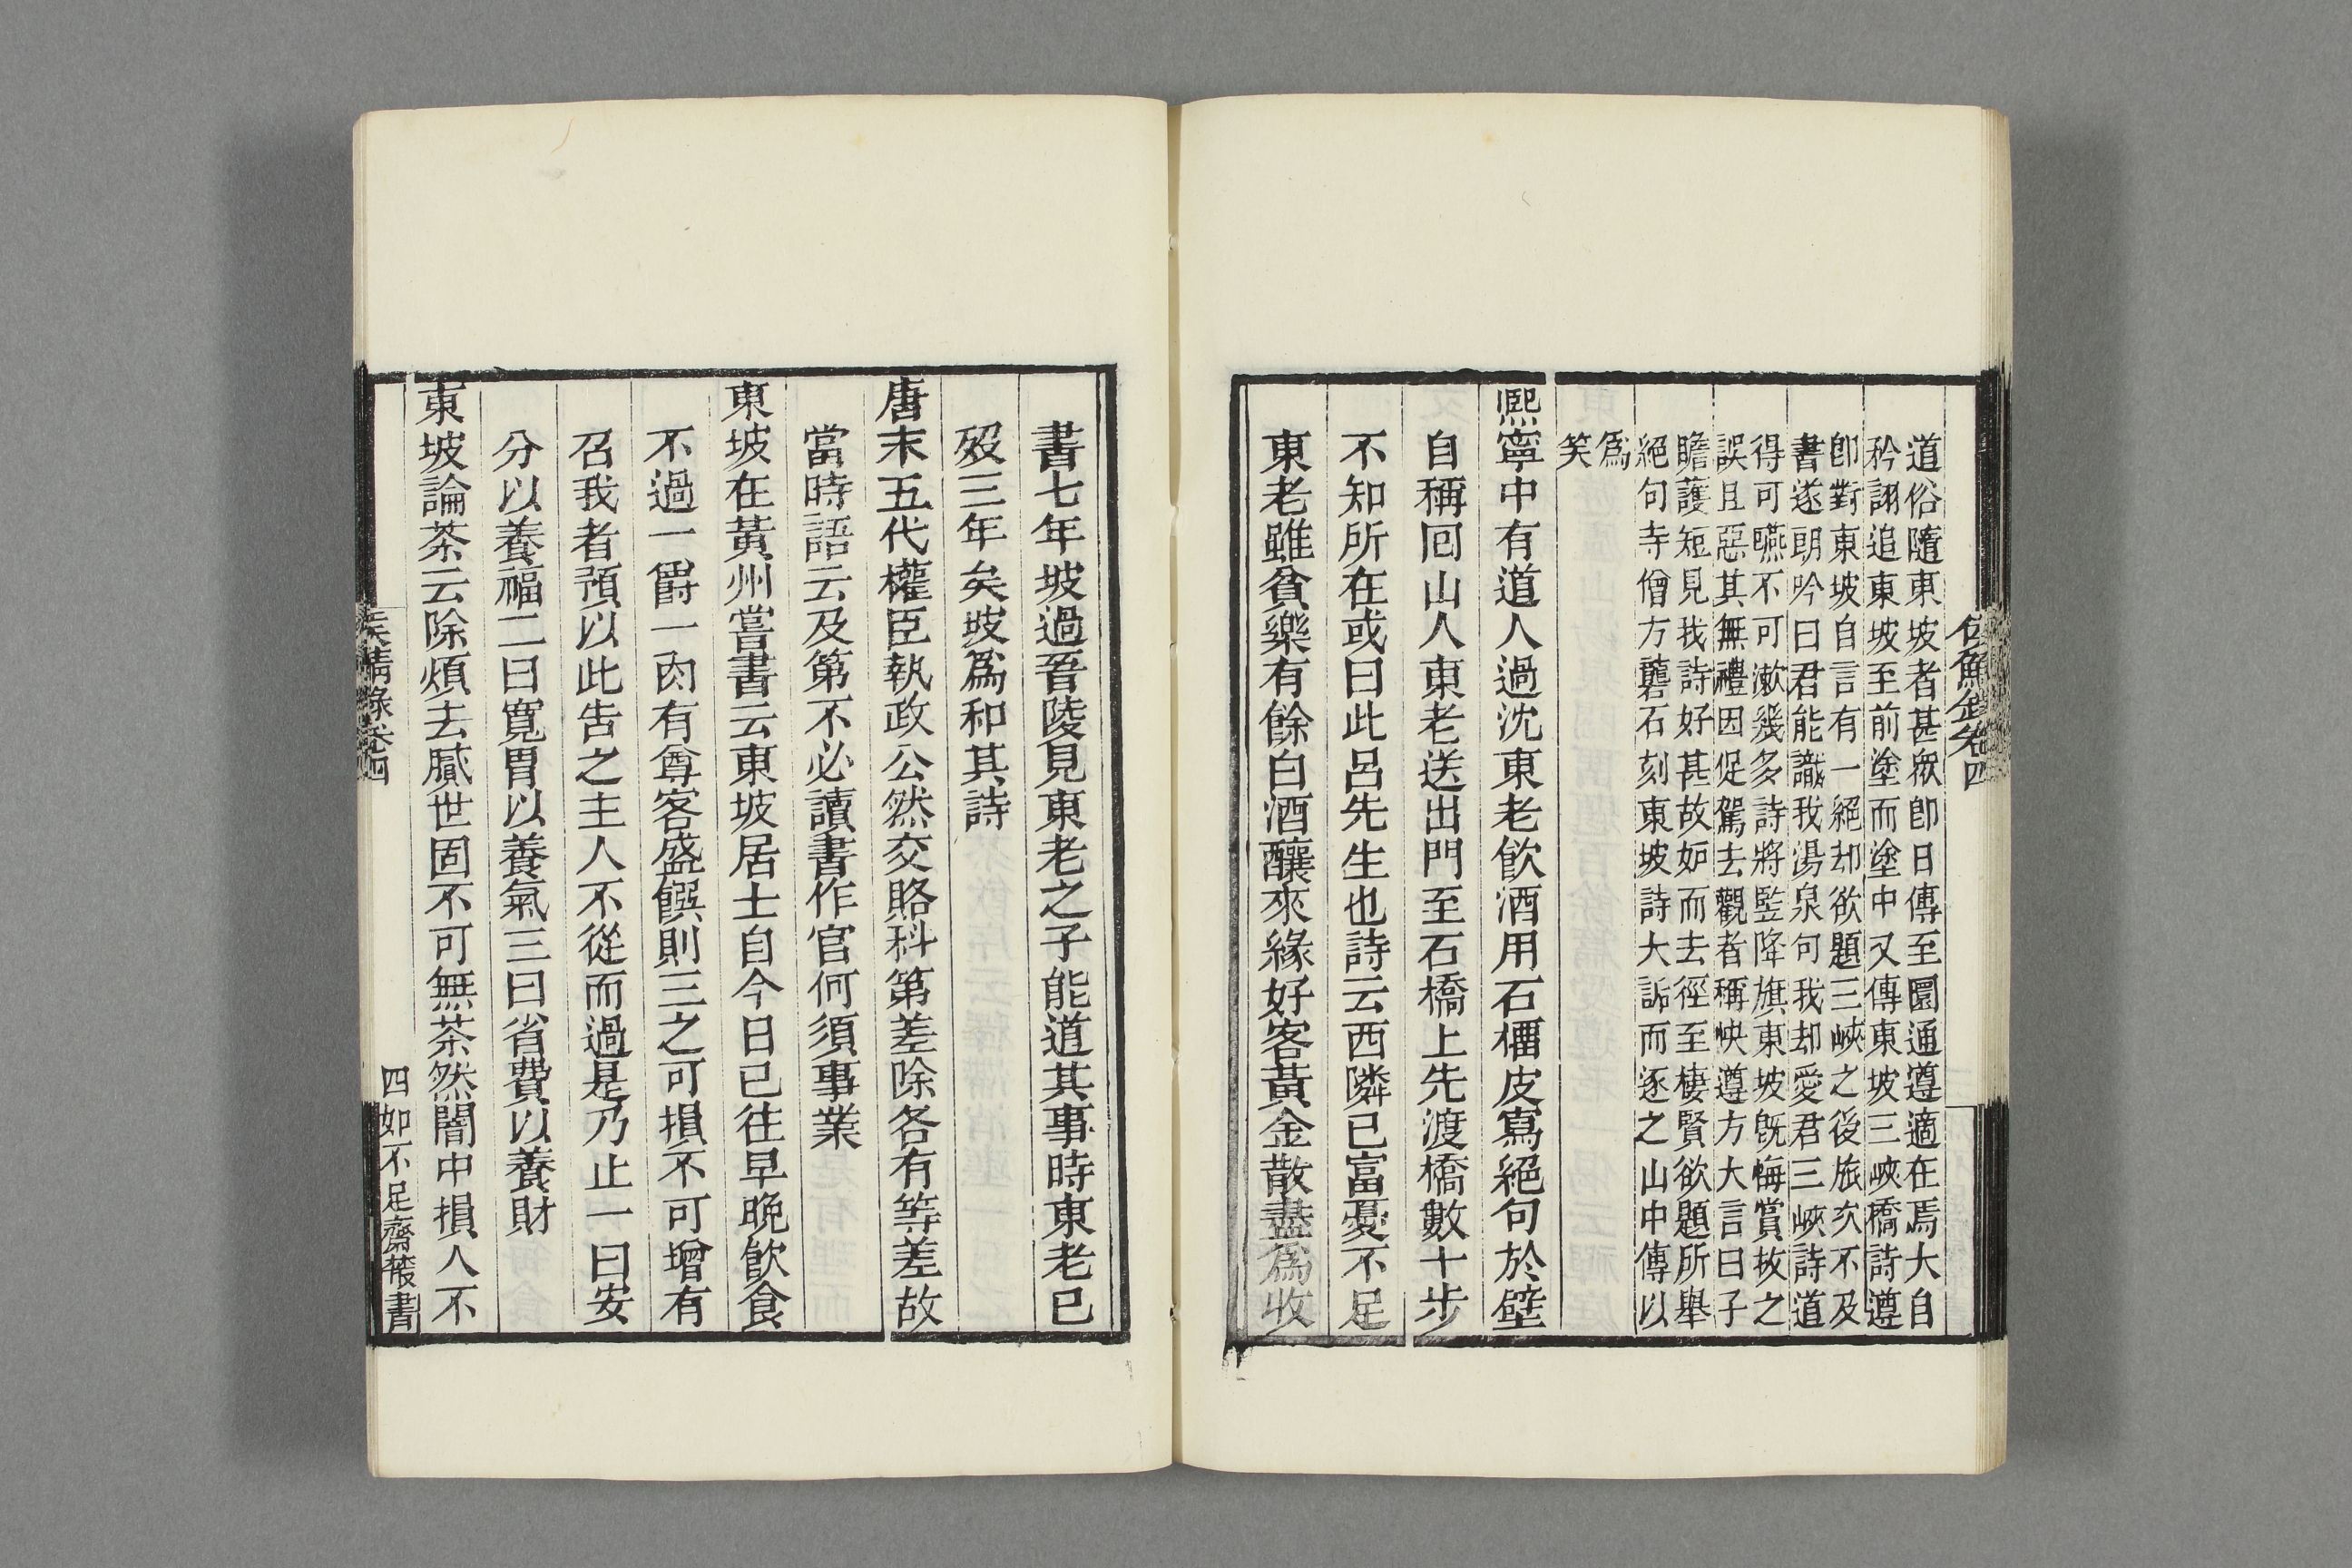 道俗隨東坡者甚衆卽日傳至圜通遵適在焉大自
矜詡追東坡至前塗而塗中又傳東坡三峽橋詩遵
卽對東坡自言有一絕却欲題三峽之後旅次不及
書遂朗吟曰君能識我湯泉句我却愛君三峽詩道
得可嚥不可漱幾多詩將竪降旗東坡旣悔賞拔之
誤且惡其無禮因促駕去觀者稱快遵方大言曰子
瞻護短見我詩好甚故妒而去徑至棲賢欲題所舉
絕句寺僧方礱石刻東坡詩大詬而逐之山中傳以
爲
笑
熙寧中有道人過沈東老飲酒用石榴皮寫絕句於壁
自稱回山人東老送出門至石橋上先渡橋數十步
不知所在或曰此呂先生也詩云西隣已富憂不足
東老雖貧樂有餘白酒釀來緣好客黃金散盡爲收
書七年坡過吾陵見東老之子能道其事時東老已
歿三年矣坡爲和其詩
唐末五代權臣執政公然交賂科第差除各有等差故
當時語云及第不必讀書作官何須事業
東坡在黃州嘗書云東坡居士自今日已往早晩飲食
不過一爵一肉有尊客盛饌則三之可損不可增有
召我者預以此告之主人不從而過是乃止一曰安
分以養福二曰寬胃以養氣三曰省費以養財
東坡論茶云除煩去膩世固不可無茶然闇中損人不
四 知不足齋叢書